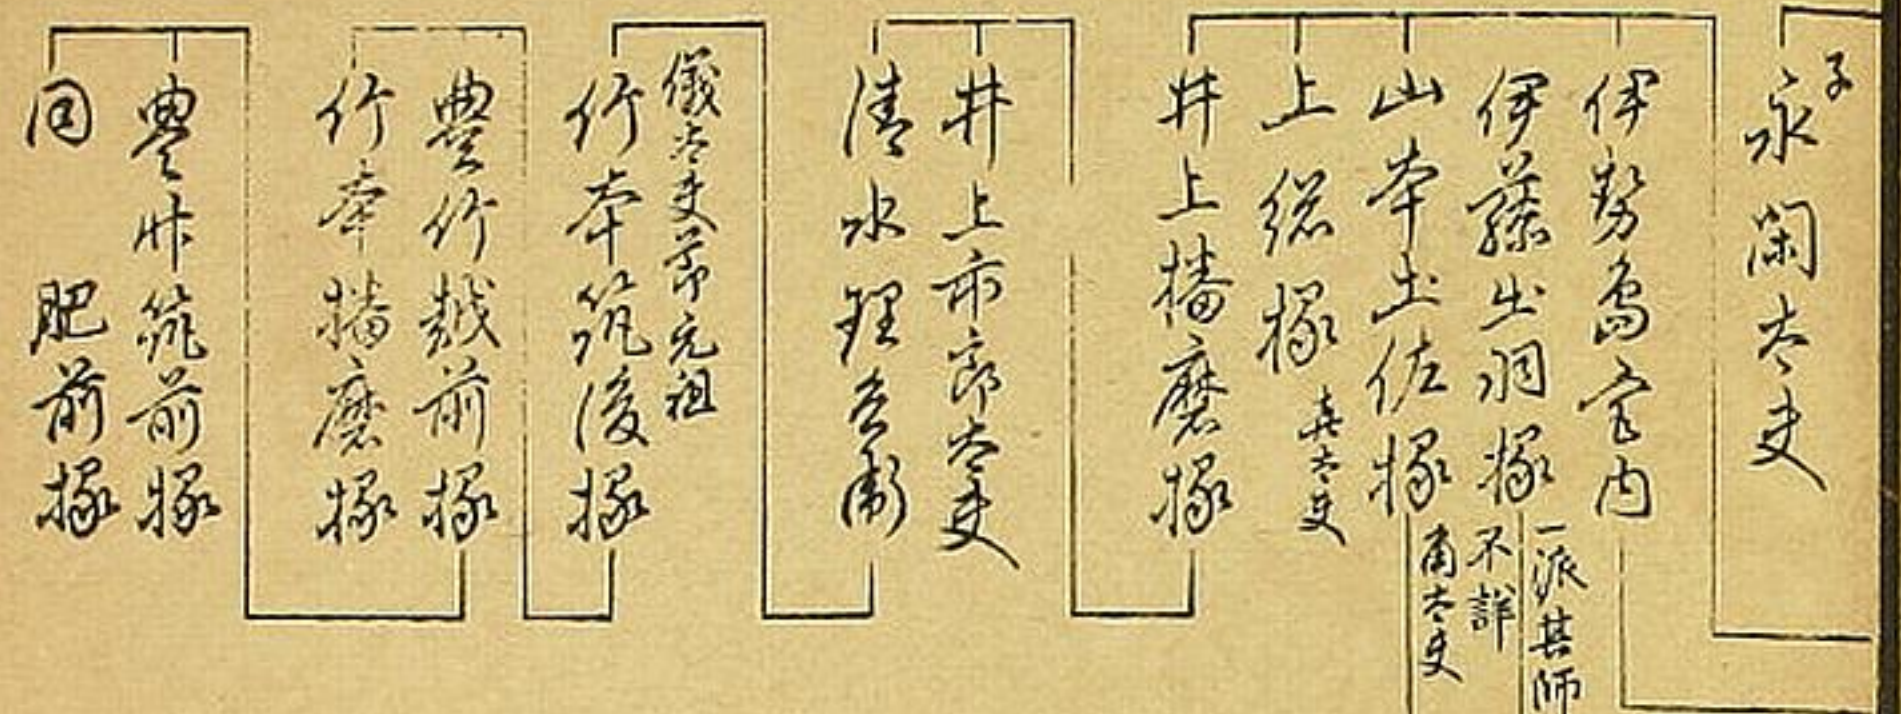 子
永閑太夫
伊勢島宮内
伊藤出羽掾
一派其師
不詳
山本土佐掾
角太夫
上総掾
喜太夫
井上播磨掾
井上市郎太夫
清水理兵衛
儀太夫節元祖
竹本筑後掾
豊竹越前掾
竹本播磨掾
豊竹筑前掾
同 肥前掾